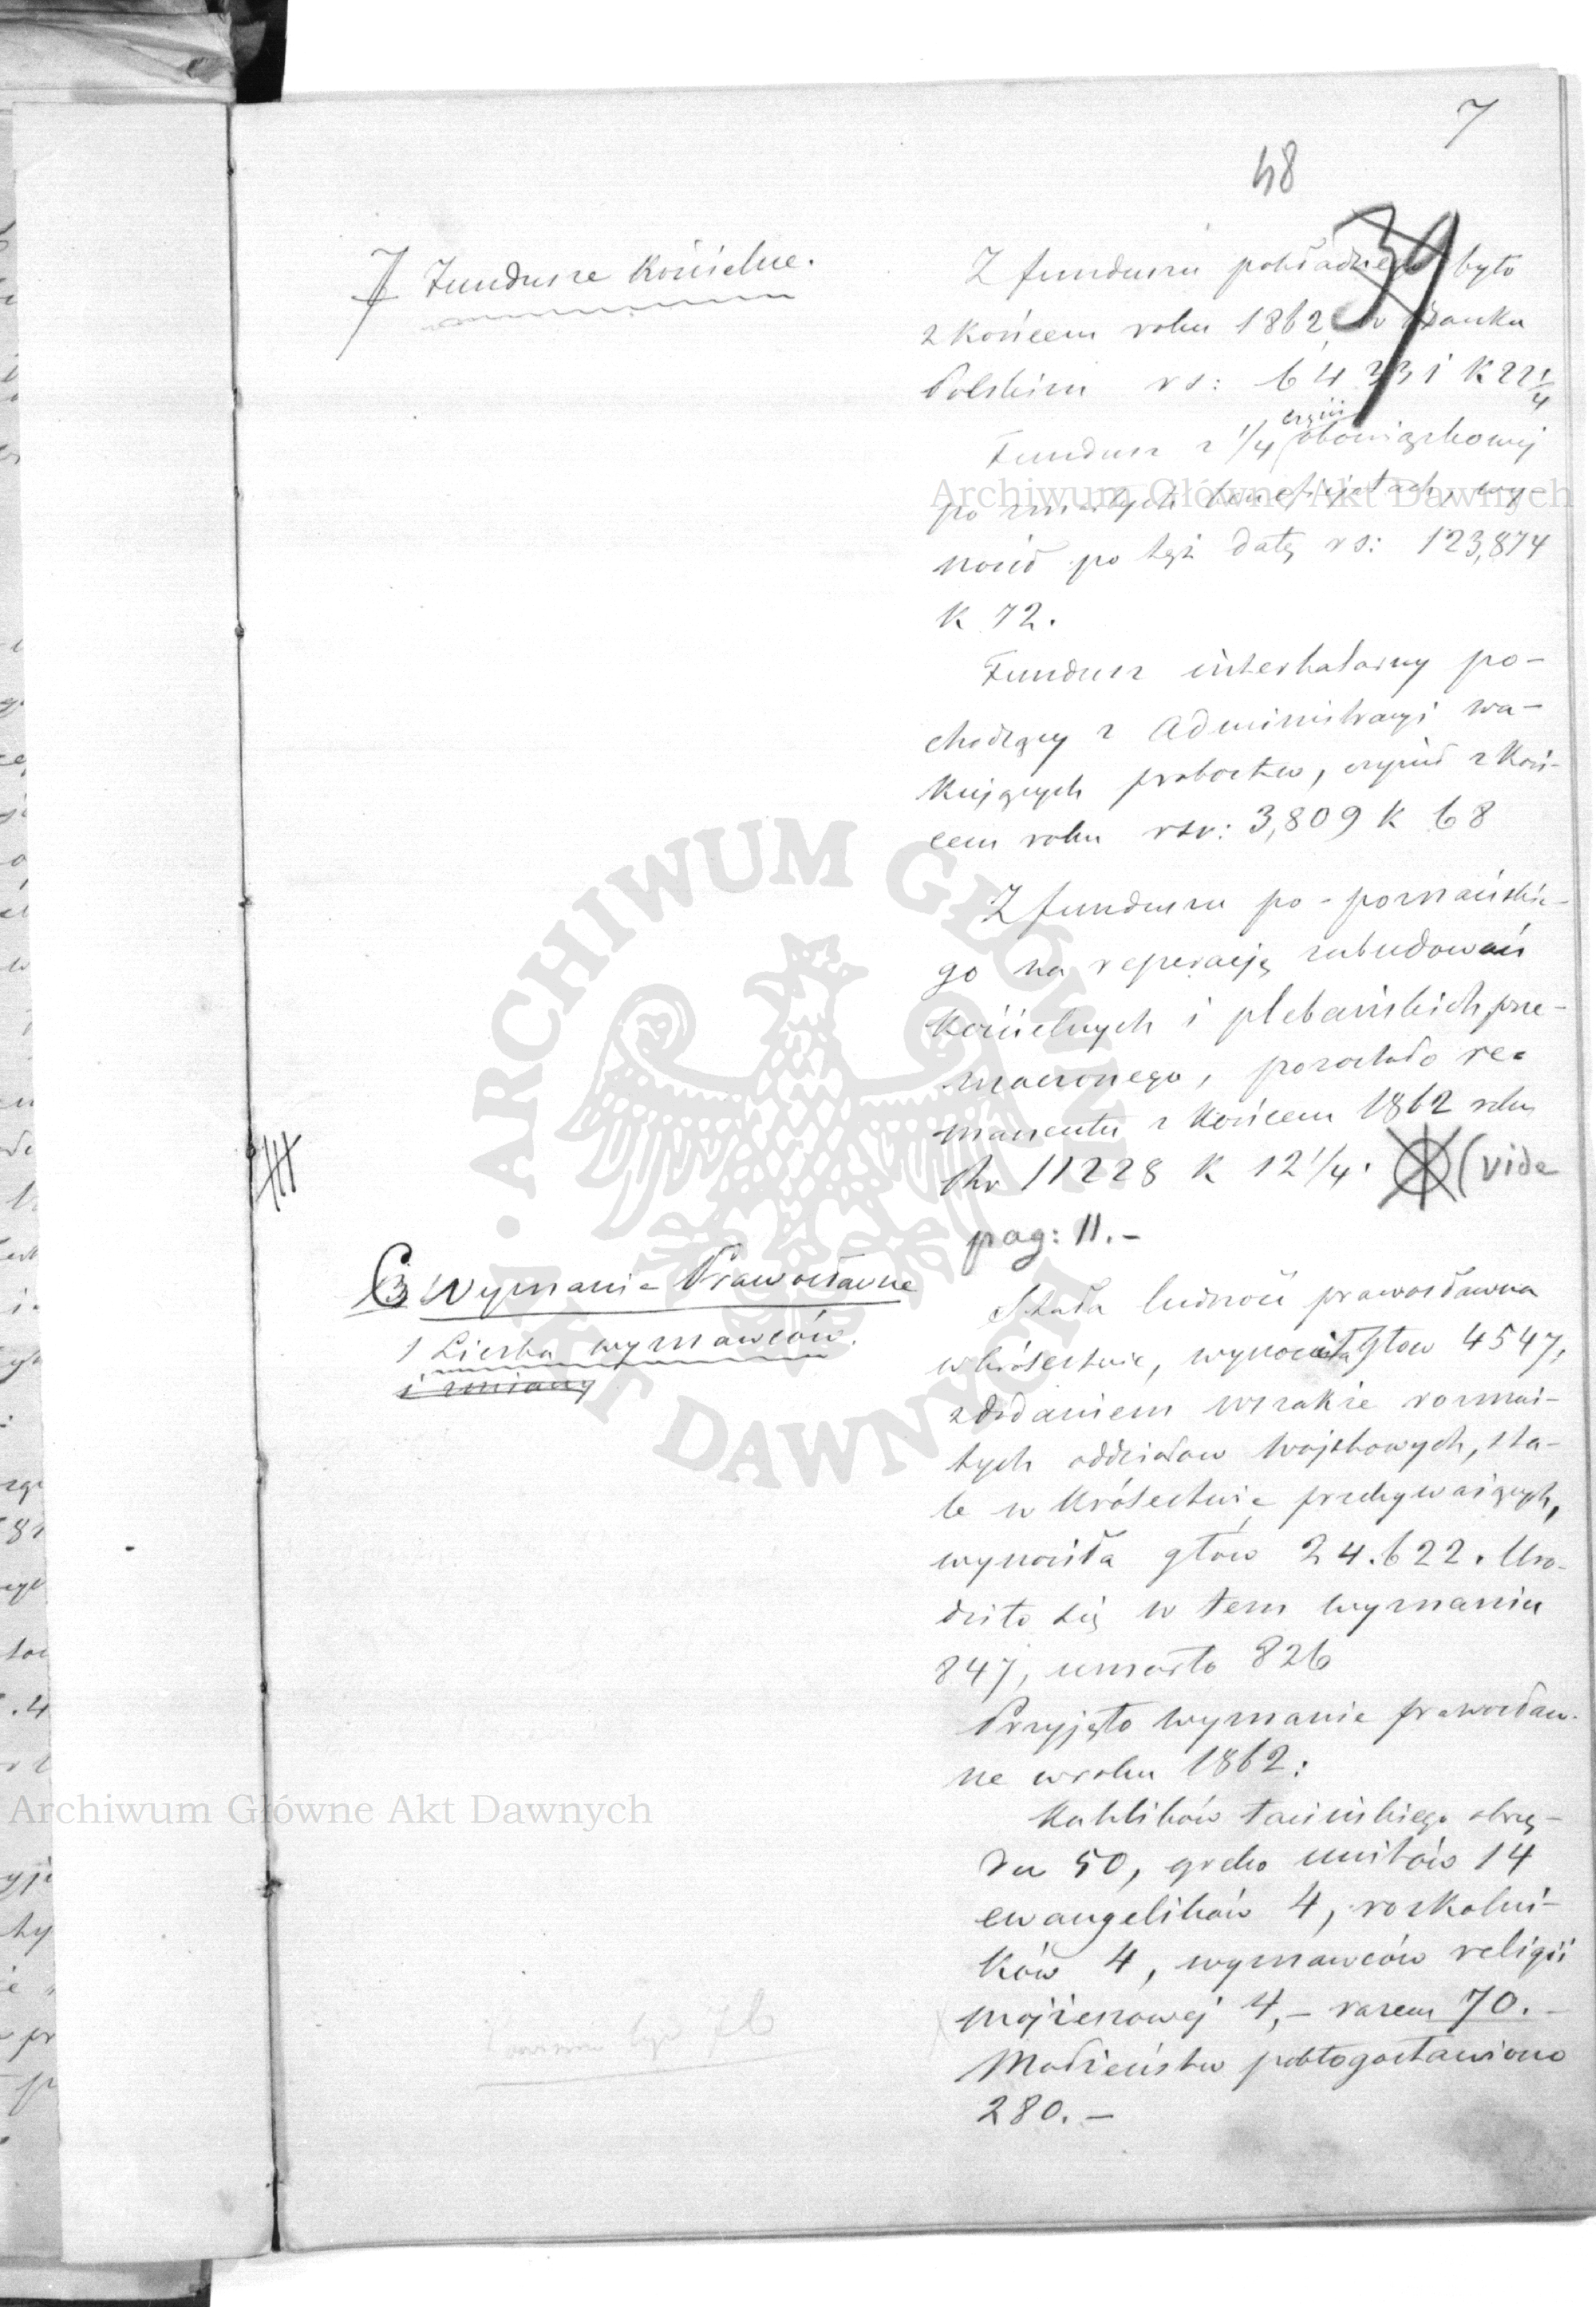 7
48
39
7 Fundusze Kościelne.
Z funduszu pokładnego było
z końcem roku 1862, w Banku
Polskim rs: 64331 K 22 1/4
Fundusz z 1/4 części obowiązkowej
po zmarłych beneficjatach, wy-
nosił po tęż datę rs: 123,874
K 72.
Fundusz interkalarny po-
chodzący z Administracyi wa-
kujących probostw, czynił z koń-
cem roku rsr: 3,809 K 68
Z funduszu po-poznańskie-
go na reperacją zabudowań
kościelnych i plebańskich prze-
znaczonego, pozostało re-
manentu z końcem 1862 roku
Rs 11228 K 12 1/4. (vide
pag: 11.-
B Wyznanie Prawosławne
1 Liczba wyznawców.
i zmiany
Stała ludność prawosławna
w Królestwie, wynosiła głow 4547,
z dodaniem wszakże rozmai-
tych oddziałow wojskowych, sta-
le w Królestwie przebywających,
wynosiła głów 24.622. Uro-
dziło się w tem wyznaniu
847, umarło 826
Przyjęło wyznanie prawosław-
ne w roku 1862:
Katolików łacińskiego obrzą-
dku 50, greko unitów 14
ewangelików 4, roskolni-
ków 4, wyznawców religii
mojżeszowej 4,- razem 70.-
Małżeństw pobłogosławiono
280.-
Archiwum Główne Akt Dawnych
Archiwum Główne Akt Dawnych
ARCHIWUM GŁÓWNE AKT DAWNYCH